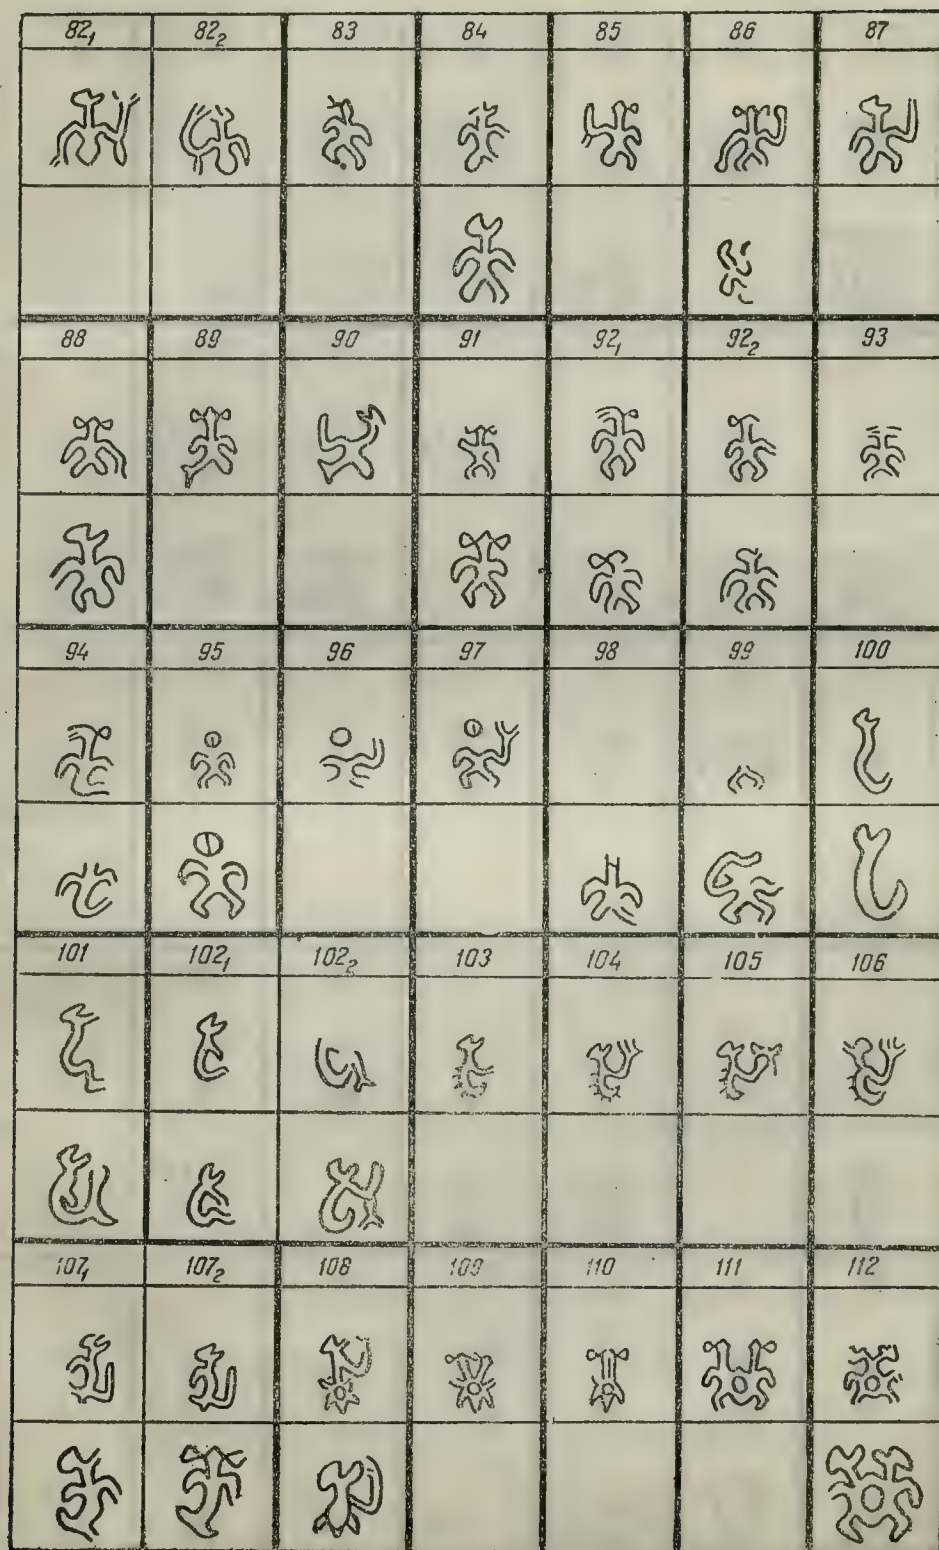 82₁ 82₂ 83 84 85 86 87
88 89 90 91 92₁ 92₂ 93
94 95 96 97 98 99 100
101 102₁ 102₂ 103 104 105 106
107₁ 107₂ 108 109 110 111 112